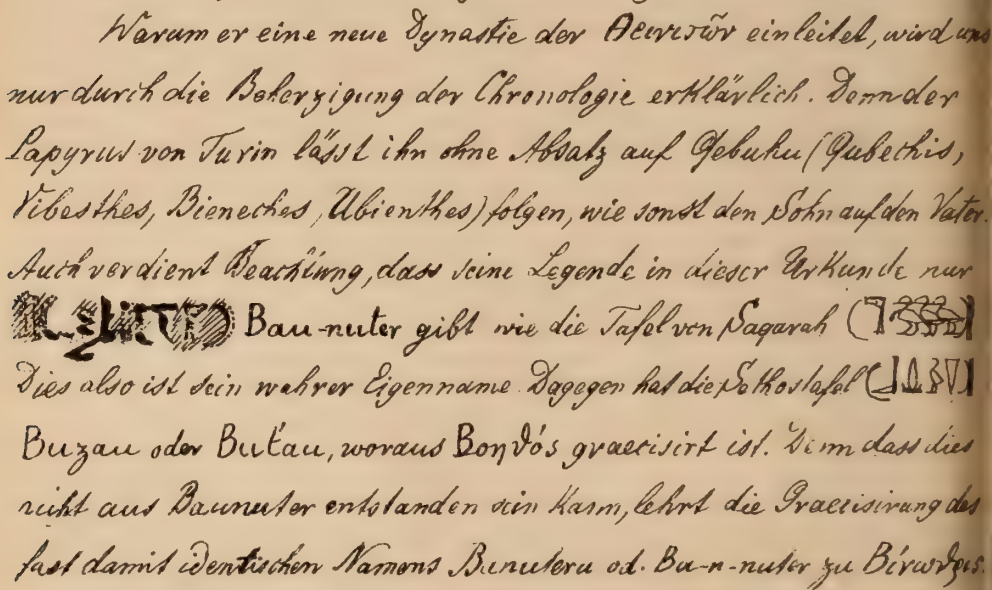 Warum er eine neue Dynastie der einleitet, wird uns
nur durch die Beherzigung der Chronologie erklärlich. Denn der
Papyrus von Turin lässt ihn ohne Absatz auf Qebuhu (Qubechis,
Vibesthes, Bieneches, Ubienthes) folgen, wie sonst den Sohn auf den Vater.
Auch verdient Beachtung, dass seine Legende in dieser Urkunde nur
Bau-nuter gibt wie die Tafel von Saqarah (
Dies also ist sein wahrer Eigenname. Dagegen hat die Sethostafel (
Buzau oder But'au, woraus Βοηϑός graecisirt ist. Denn dass dies
nicht aus Baunuter entstanden sein kann, lehrt die Graecisirung des
fast damit identischen Namens Binuteru od. Ba-n-nuter zu Βίνωϑρις.